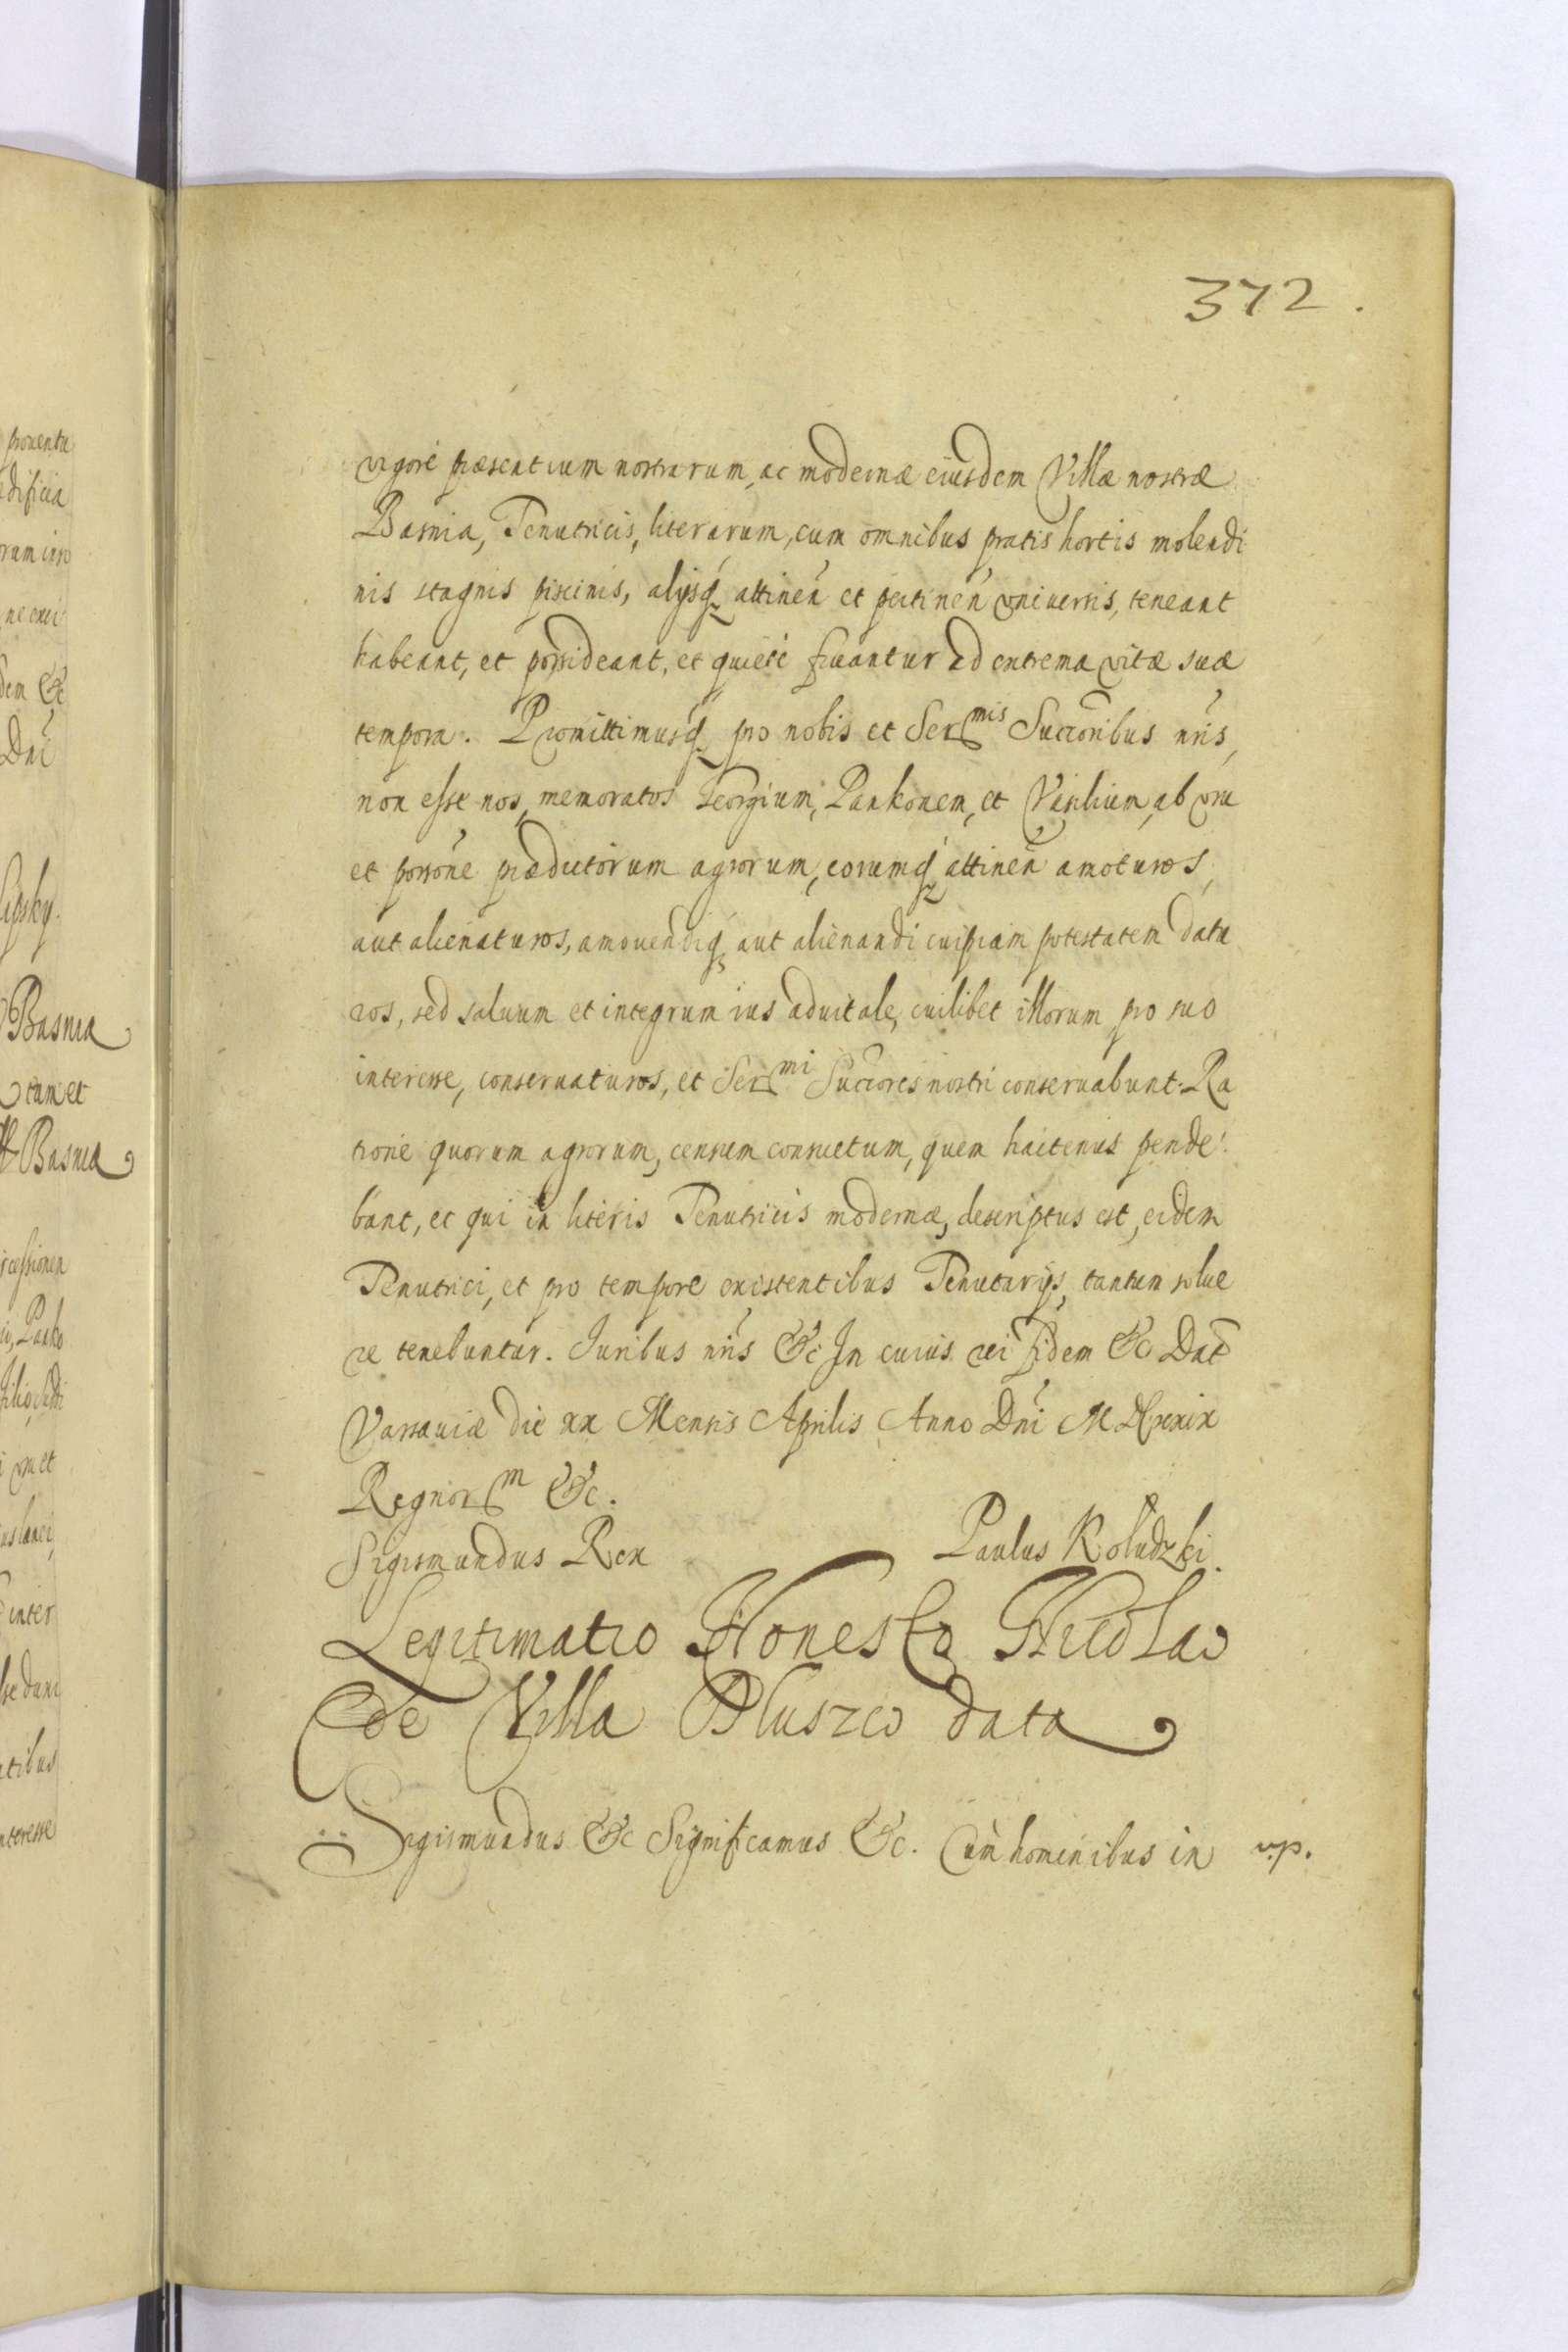 372.
vigore præsentium nostrarum, ac modernæ eiusdem Villæ nostræ
Basnia, Tenutricis, literarum, cum omnibus pratis hortis molendi
nis stagnis piscinis, alijsq attinen et pertinen vniuersis, teneant
habeant, et possideant, et quiete fruantur ad extrema vitæ suæ
tempora. Promittimusq pro nobis et Sermis Succoribus nris,
non esse nos, memoratos Georgium, Pankonem, et Vasilium, ab vsu
et possone prædictorum agrorum, eorumq attinen amoturos,
aut alienaturos, amouendiq aut alienandi cuipiam potestatem datu
ros, sed saluum et integrum ius aduitale, cuilibet illorum pro suo
interesse, conseruaturos, et Sermi Succores nostri conseruabunt. Ra
tione quorum agrorum, censum consuetum, quem hactenus pende
bant, et qui in literis Tenutricis modernæ, descriptus est, eidem
Tenutrici, et pro tempore existentibus Tenutarijs, tantum solue
re tenebuntur. Iuribus nris &c In cuius rei fidem &c Dat
Varsauiæ die xx Mensis Aprilis Anno Dni M DCxxix
Regnorm &c.
Sigismundus Rex Paulus Koludzki.
Legitimatio Honesto Nicolao
de Villa Pluszco data
Sigismundus &c Significamus &c. Cum hominibus in v.p.
prouentu
edificia
Dni
Lipsky.
Basnia
Basnia
Panko
inter
interesse